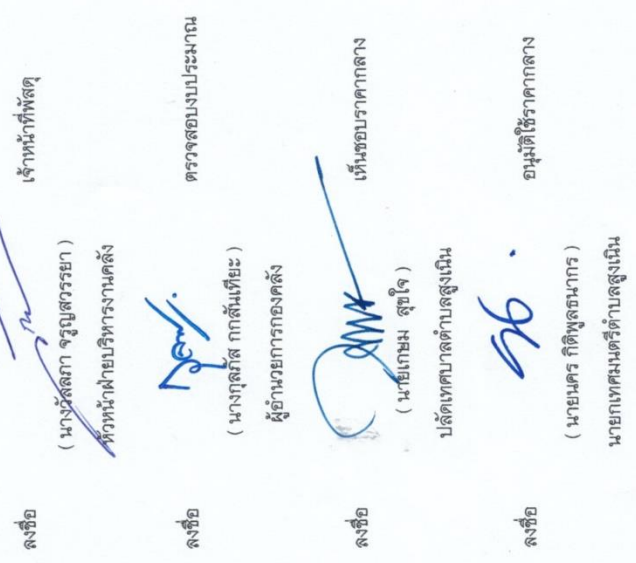 ลงชื่อ เจ้าหน้าที่พัสดุ
( นางวัลลภา จรูญสวรรยา )
หัวหน้าฝ่ายบริหารงานคลัง
ลงชื่อ ตรวจสอบงบประมาณ
( นางกุลภัส กกสันเทียะ )
ผู้อำนวยการกองคลัง
ลงชื่อ เห็นชอบราคากลาง
( นายเกษม สุขใจ )
ปลัดเทศบาลตำบลสูงเนิน
ลงชื่อ อนุมัติใช้ราคากลาง
( นายนคร กิติพูลธนากร )
นายกเทศมนตรีตำบลสูงเนิน